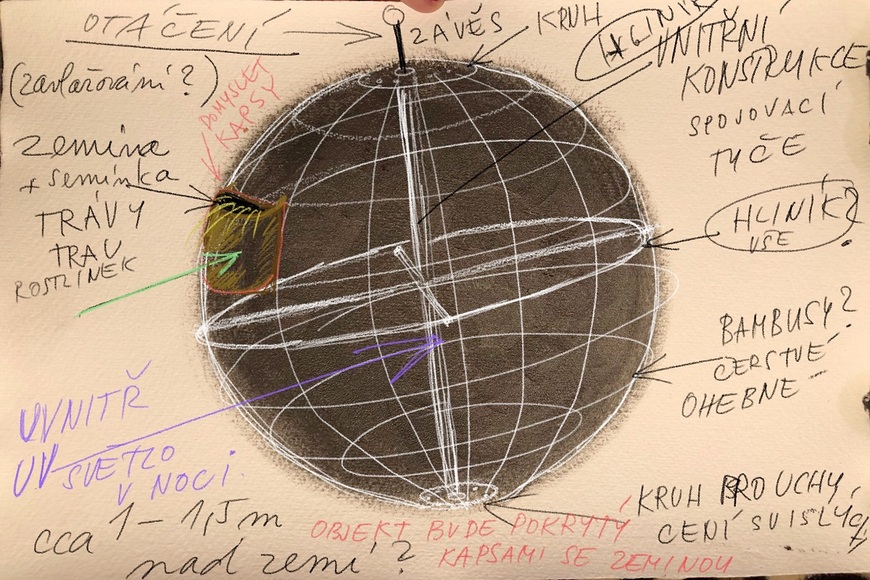 OTÁČENÍ
(zavlažování?)
DOMYSLET
KAPSY
zemina
+ semínka
TRÁVY
TRAV
ROSTLINEK
UVNITŘ
UV SVĚTLO
V NOCI.
cca 1-1,5m
nad zemí?
ZÁVĚS
KRUH
HLINÍK
VNITŘNÍ
KONSTRUKCE
SPOJOVACÍ
TYČE
HLINÍK?
VŠE
BAMBUSY?
ČERSTVÉ
OHEBNÉ
KRUH PRO UCHY
CENÍ SVISLÝCH
OBJEKT BUDE POKRYTÝ
KAPSAMI SE ZEMINOU